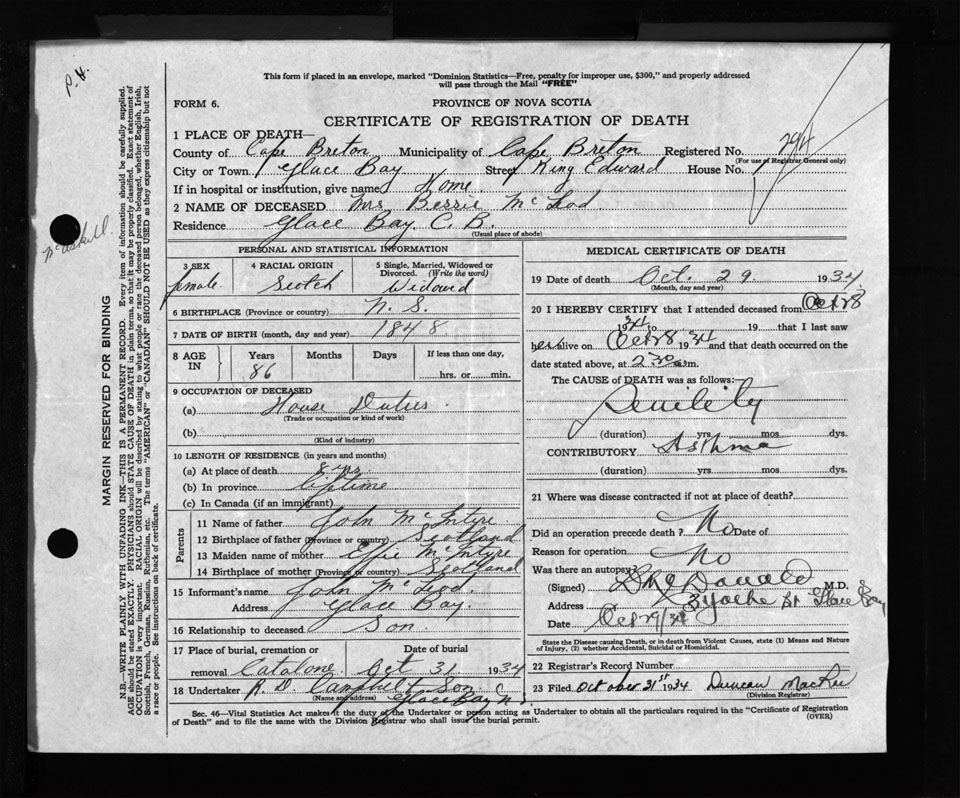 P. H.
This form if placed in an envelope, marked "Dominion Statistics—Free, penalty for improper use, $300," and properly addressed
will pass through the Mail "FREE"
FORM 6.
PROVINCE OF NOVA SCOTIA
CERTIFICATE OF REGISTRATION OF DEATH
1 PLACE OF DEATH—
County of Cape Breton Municipality of Cape Breton Registered No. 294
(For use of Registrar General only)
City or Town Glace Bay Street King Edward House No.
If in hospital or institution, give name Home
2 NAME OF DECEASED Mrs Bessie McLeod
Residence Glace Bay C. B.
(Usual place of abode)
PERSONAL AND STATISTICAL INFORMATION
3 SEX female
4 RACIAL ORIGIN Scotch
5 Single, Married, Widowed or
Divorced. (Write the word)
Widowed
6 BIRTHPLACE (Province or country) N. S.
7 DATE OF BIRTH (month, day and year) 1848
8 AGE IN Years 86 Months Days If less than one day,
hrs. or min.
9 OCCUPATION OF DECEASED
(a) House Duties
(Trade or occupation or kind of work)
(b)
(Kind of industry)
10 LENGTH OF RESIDENCE (in years and months)
(a) At place of death 8 yrs.
(b) In province lifetime
(c) In Canada (if an immigrant)
Parents
11 Name of father John McIntyre
12 Birthplace of father (Province or country) Scotland
13 Maiden name of mother Effie McIntyre
14 Birthplace of mother (Province or country) Scotland
15 Informant's name John McLeod
Address Glace Bay.
16 Relationship to deceased Son
17 Place of burial, cremation or Date of burial
removal Catalone Oct 31 1934
18 Undertaker R. D. Campbell & Son
(Name and address) Glace Bay N. S.
MEDICAL CERTIFICATE OF DEATH
19 Date of death Oct. 29 1934
(Month, day and year)
20 I HEREBY CERTIFY that I attended deceased from Oct 28
1934 to 19 that I last saw
her alive on Oct 28 1934 and that death occurred on
date stated above, at 2 30 a.m.
The CAUSE OF DEATH was as follows:
Senility
(duration) yrs. mos. dys.
CONTRIBUTORY Asthma
(duration) yrs. mos. dys.
21 Where was disease contracted if not at place of death?
Did an operation precede death? No Date of
Reason for operation
Was there an autopsy? No
(Signed) McDonald M.D.
Address 3 Yorke St Glace Bay
Date Oct 29/34
State the Disease causing Death, or in death from Violent Causes, state (1) Means and Nature
of Injury, (2) whether Accidental, Suicidal or Homicidal.
22 Registrar's Record Number
23 Filed October 31st 1934 Duncan MacRae
(Division Registrar)
Sec. 46—Vital Statistics Act makes it the duty of the Undertaker or person acting as Undertaker to obtain all the particulars required in the "Certificate of Registration
of Death" and to file the same with the Division Registrar who shall issue the burial permit.
(OVER)
McAskill.
MARGIN RESERVED FOR BINDING
N.B.—WRITE PLAINLY WITH UNFADING INK—THIS IS A PERMANENT RECORD. Every item of information should be carefully supplied.
AGE should be stated EXACTLY. PHYSICIANS should STATE CAUSE OF DEATH in plain terms, so that it may be properly classified. Exact statement of
OCCUPATION is very important. RACIAL ORIGIN will be described by stating to what people or race the deceased person belonged, whether English, Irish,
Scottish, French, German, Russian, Ruthenian, etc. The terms "AMERICAN" or "CANADIAN" SHOULD NOT BE USED as they express citizenship but not
a race or people. See instructions on back of certificate.